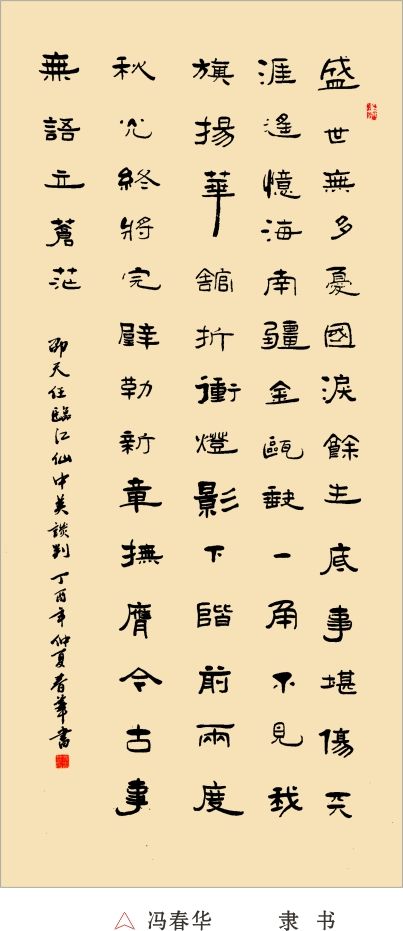 盛世無多憂國淚餘生底事堪傷天
涯遙憶海南疆金甌缺一角不見我
旗揚華館折衝燈影下階前兩度
秋光終將完璧勒新章撫膺今古事
無語立蒼茫
邵天任臨江仙中英談判 丁酉年仲夏春華書
冯春华 隶书